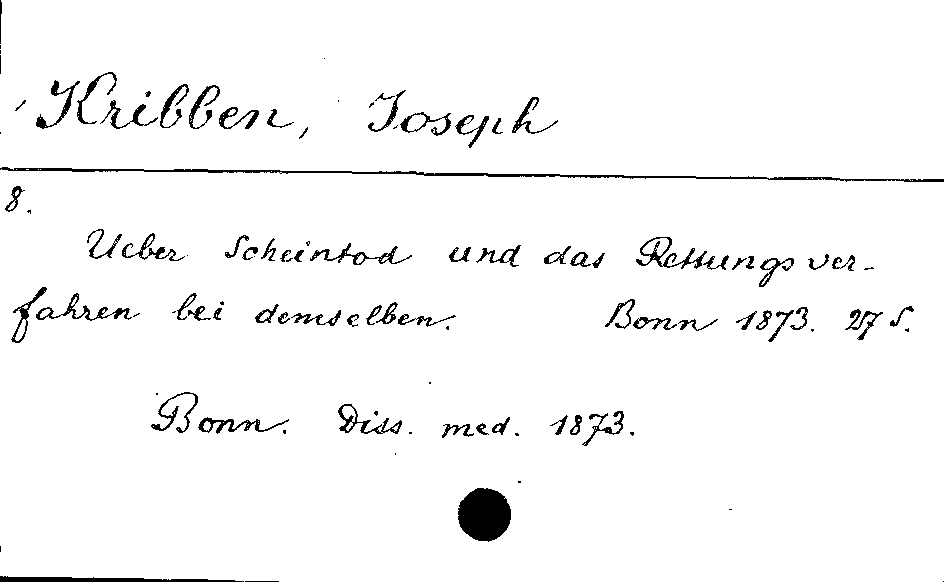 Kribben, Joseph
8.
Ueber Scheintod und das Rettungsver-
fahren bei demselben. Bonn 1873. 27 S.
Bonn. Diss. med. 1873.